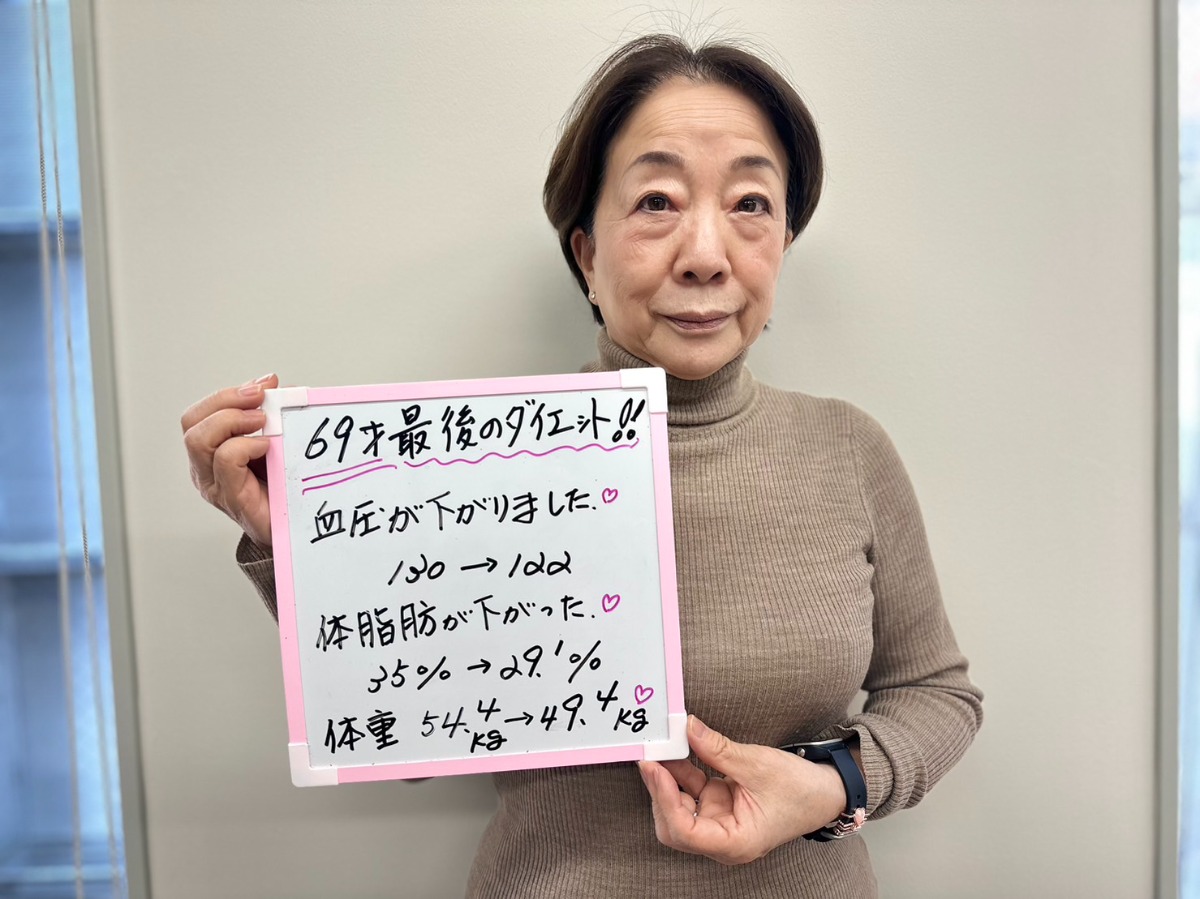 69才最後のダイエット!!
血圧が下がりました.♡
130→122
体脂肪が下がった.♡
35%→29.1%
体重 54.4kg→49.4kg♡